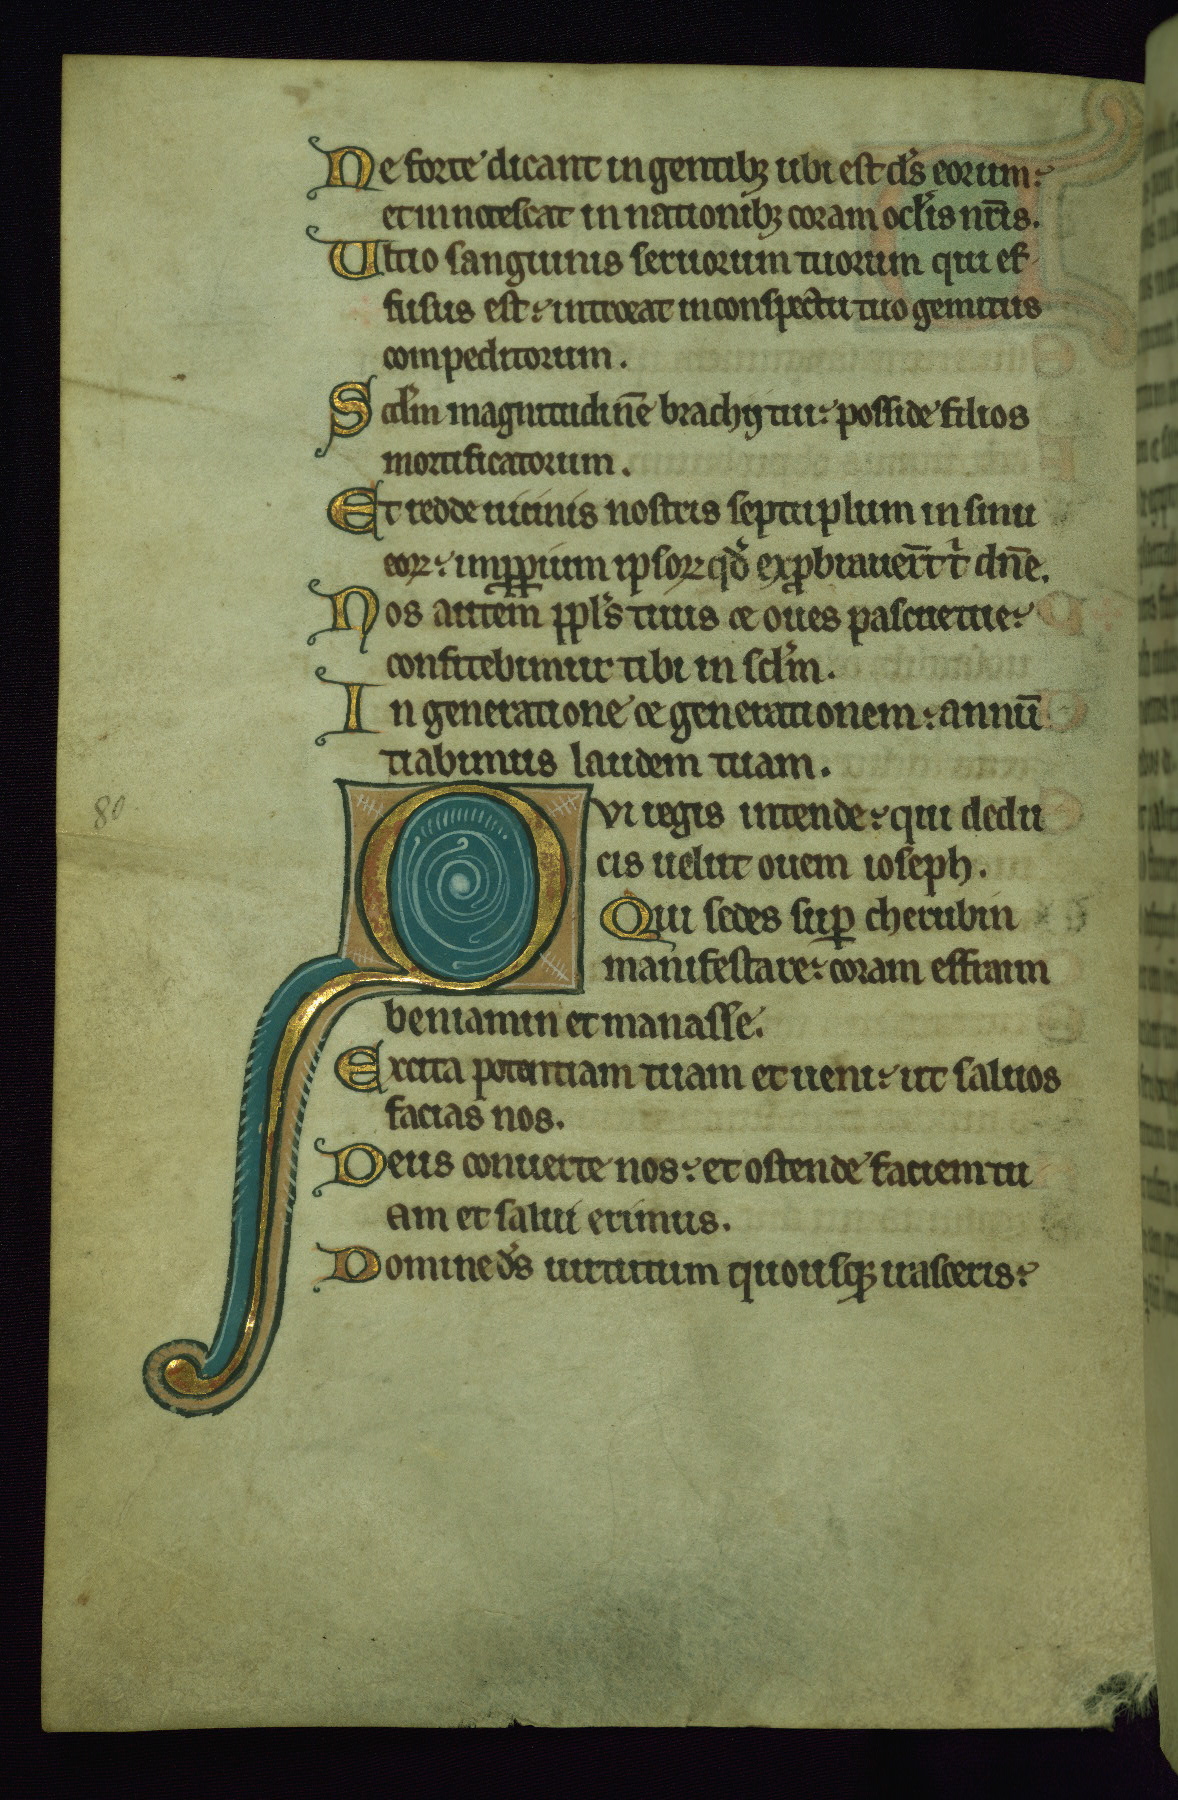 Ne forte dicant in gentibꝫ ubi est ds̄ eorum:
et innotescat in nationibꝫ coram oclis nr̄is.
Ultio sanguinis seruorum tuorum qui ef
fusus est: introeat in conspectu tuo gemitus
compeditorum.
Scdm magnitudinē brachij tui: posside filios
mortificatorum.
Et redde uicinis nostris septuplum in sinu
eoꝝ: inꝓꝑium ipsoꝝ qđ exꝓbrauer̄t t̄ dn̄e.
Nos autem ppl's tuus ⁊ oues pascue tue:
confitebimur tibi in scl'm.
In generatione ⁊ generationem: annū
tiabimus laudem tuam.
QVi regis intende: qui dedu
cis uelut ouem ioseph.
Qui sedes suꝑ cherubin
manifestare: coram effraim
beniamin et manasse.
Excita potentiam tuam et ueni: ut saluos
facias nos.
Deus conuerte nos: et ostende faciem tu
am et salui erimus.
Domine ds̄ uirtutum quousqꝫ irasceris:
80